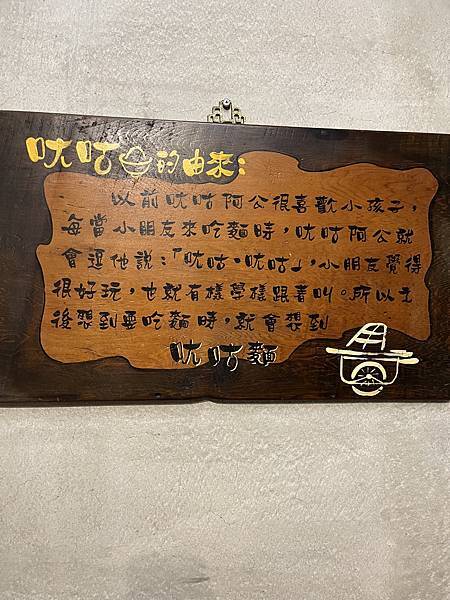 呔咕的由來：
以前呔咕阿公很喜歡小孩子，
每當小朋友來吃麵時，呔咕阿公就
會逗他說：「呔咕、呔咕」，小朋友覺得
很好玩，也就有樣學樣跟著叫。所以之
後想到要吃麵時，就會想到
呔咕麵